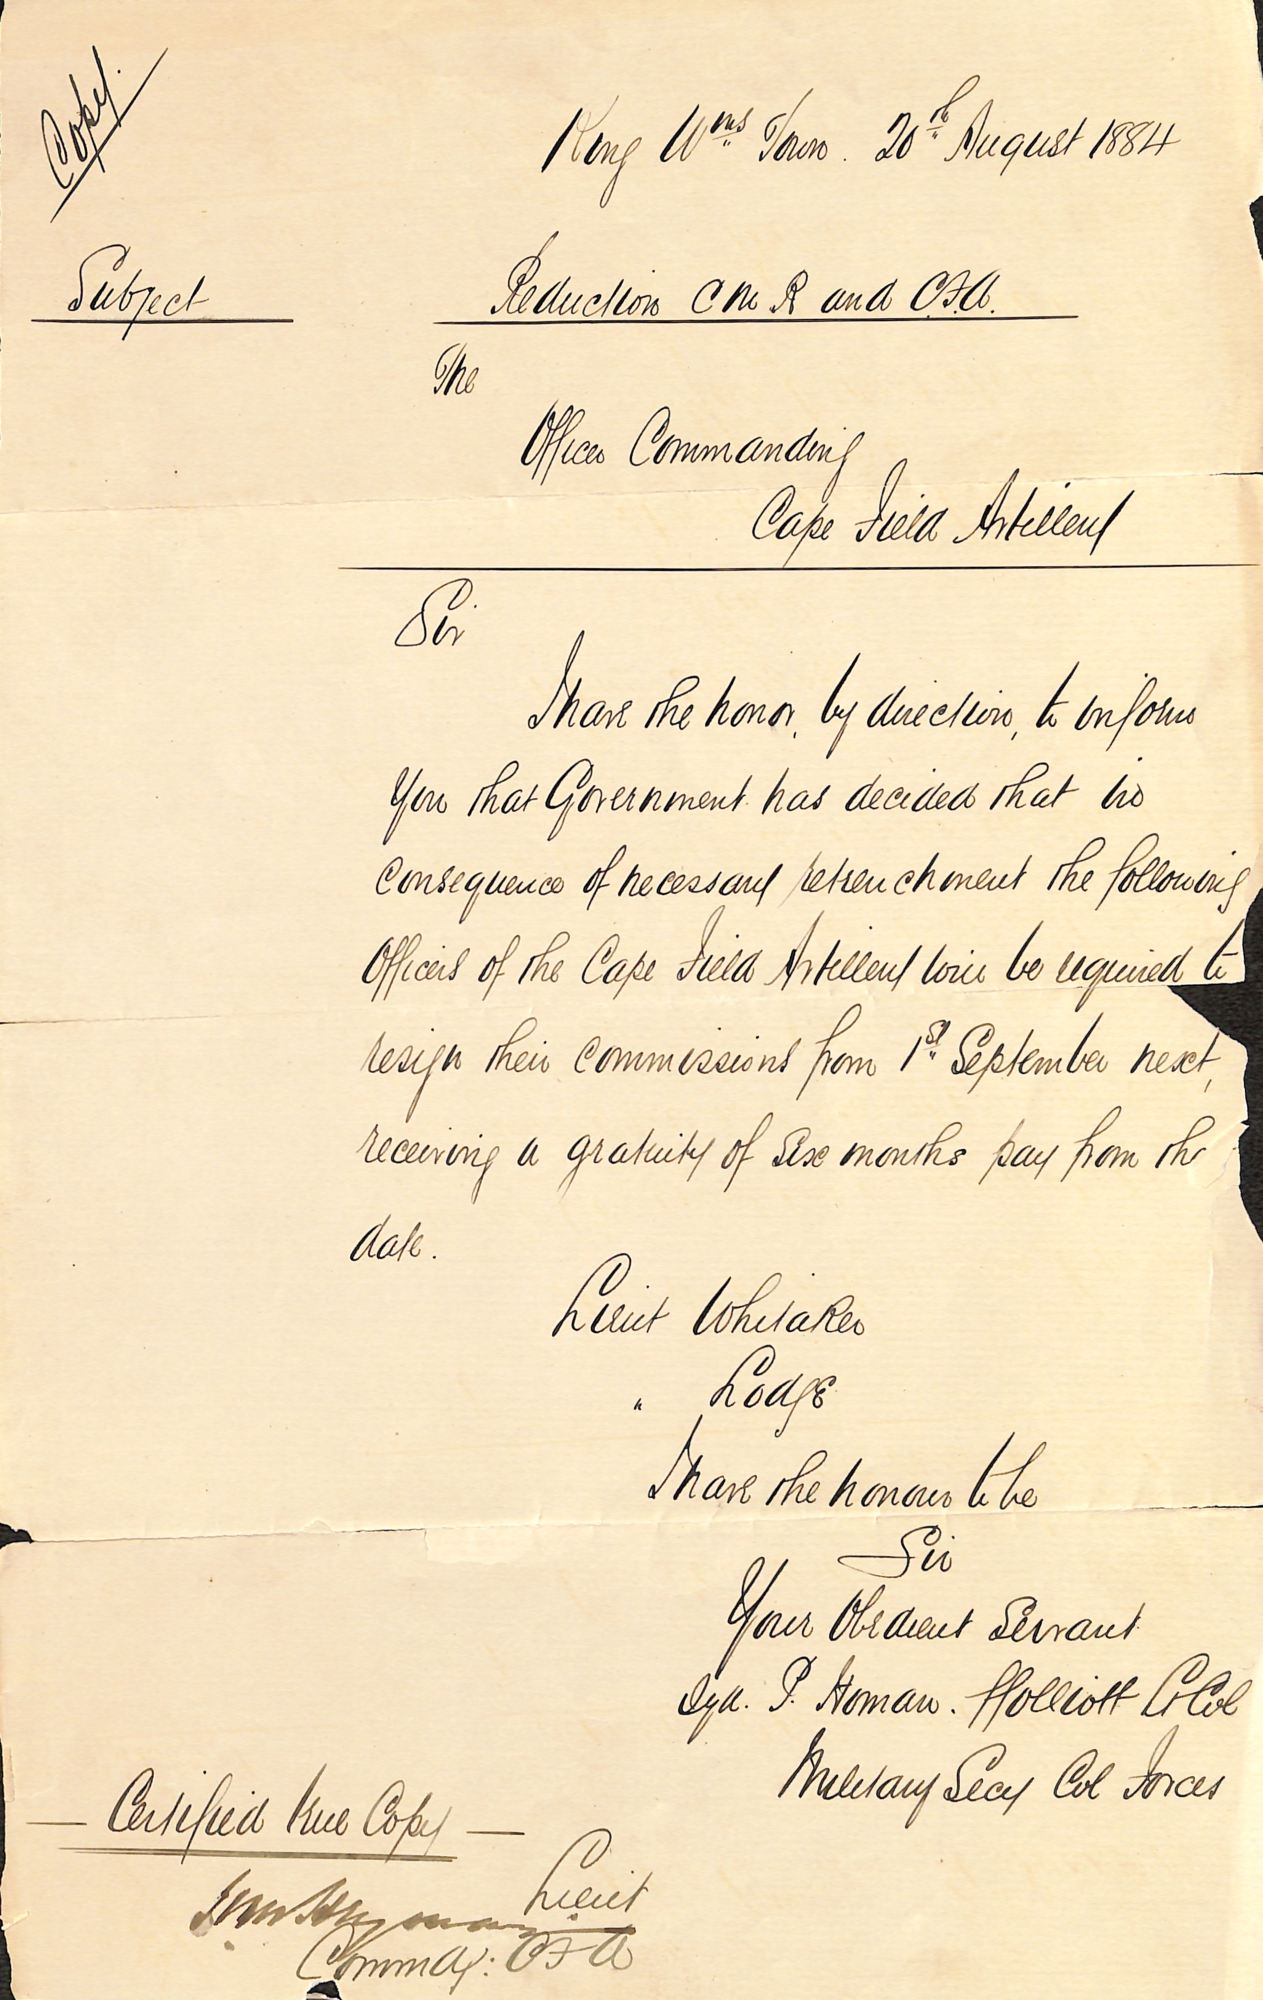 Copy.
King Wms Town. 20th August 1884
Subject Reduction C M R and C.F.A.
The
Officer Commanding
Cape Field Artillery
Sir
I have the honor, by direction, to inform
you that Government has decided that in
consequence of necessary retrenchment the following
Officers of the Cape Field Artillery will be required to
resign their commissions from 1st September next,
receiving a gratuity of six months pay from the
date.
Lieut Whitaker
" Lodge
I have the honour to be
Sir
Your Obedient Servant
Sgd. P. Homan. ffolliott Lt Col
Military Secy Col Forces
— Certified true Copy —
Lieut
Commdg: CFA